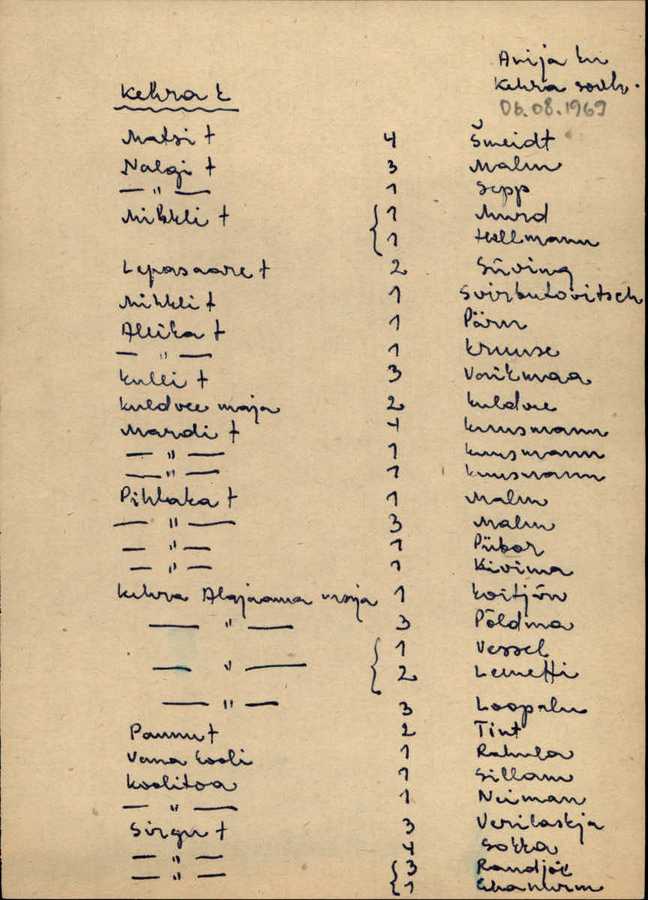 Anija kn
Kehra sovh.
06.08.1969
Kehra k
Matsi t 4 Šmeidt
Nalgi t 3 Malm
— " — 1 Sepp
Mihkli t 1 Murd
1 Hellmann
Lepasaare t 2 Süving
Mihkli t 1 Svirbutovitsch
Allika t 1 Pärn
— " — 1 Kruuse
Kulli t 3 Varikmaa
Kuldvee maja 2 Kuldvee
Mardi t 4 Kuusmann
— " — 1 Kuusmann
— " — 1 Kuusmann
Pihlaka t 1 Malm
— " — 3 Malm
— " — 1 Piibor
— " — 1 Kivima
Kehra Alajaama maja 1 Koitjärv
— " — 3 Põldma
1 Vessel
— " — 2 Lemetti
— " — 3 Loopalu
Paunu t 2 Tint
Vana kooli 1 Rahula
Koolitoa 1 Sillam
— " — 1 Neiman
Sirgu t 3 Verilaskja
— " — 4 Sokka
— " — 3 Randjõe
1